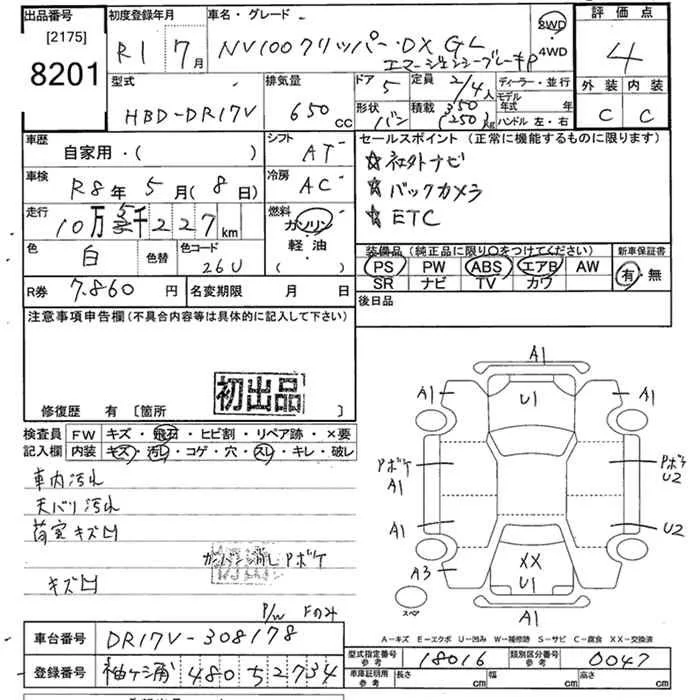 出品番号 初度登録年月 車名・グレード 2WD 評価点
[2175] R1 7月 NV100クリッパー・DX GL 4WD 4
8201 エマージェンシーブレーキP
型式 排気量 ドア 定員 ディーラー・並行 外装 内装
HBD-DR17V 650cc 5 2/4人 モデル年式 年 C C
形状 積載 ハンドル 左・右
バン 350(250)kg
車歴 シフト セールスポイント(正常に機能するものに限ります)
自家用・( ) AT ☆社外ナビ
車検 冷房 ☆バックカメラ
R8年5月(8日) AC ☆ETC
走行 燃料
10万 千227km ガソリン
軽油
色 色替 色コード 装備品(純正品に限り○をつけてください) 新車保証書
白 26U PS PW ABS エアB AW 有・無
SR ナビ TV カワ
R券 7.860円 名変期限 月 日 後日品
注意事項申告欄(不具合内容等は具体的に記入して下さい)
初出品
修復歴 有〔箇所 〕
検査員 FW キズ・飛石・ヒビ割・リペア跡・×要
記入欄 内装 キズ・汚レ・コゲ・穴・スレ・キレ・破レ
車内汚れ
天バリ汚れ
荷室キズ凹
カンバン消しPボケ
初出品
キズ凹
P/W Fのみ
A1
A1 U1 A1
PボケA1 PボケU2
A1 U2
A3 XX
U1
スペア A1
A-キズ E-エクボ U-凹み W-補修跡 S-サビ C-腐食 XX-交換済
車台番号 DR17V-308178
型式指定番号 参考 18016 類別区分番号 参考 0047
登録番号 袖ヶ浦 480 5 2734
車庫証明用 参考 長さ cm 幅 cm 高さ cm